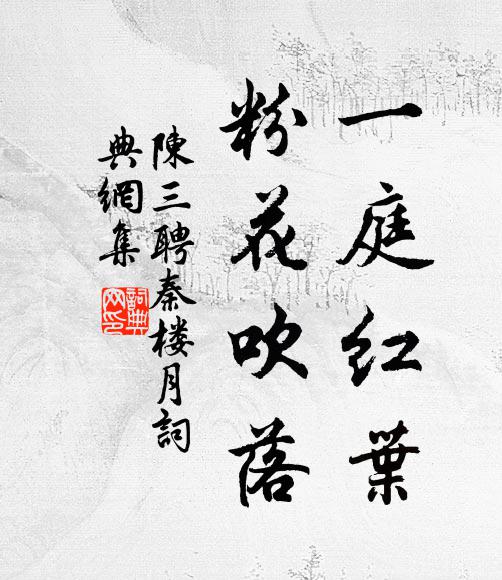 一庭红葉
粉花吹落
陳三聘秦楼月詞
典網集
詞典
网印